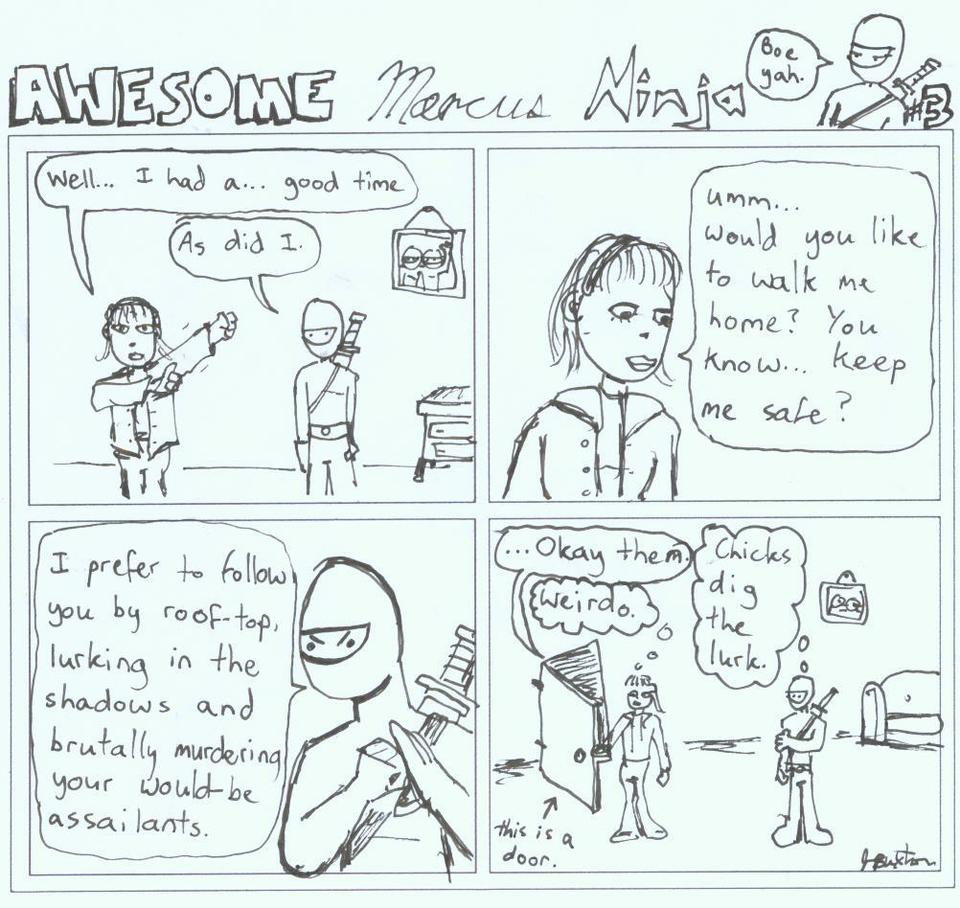 AWESOME Marcus Ninja
Boe
yah.
#3
Well... I had a... good time
As did I.
umm...
would you like
to walk me
home? You
know... keep
me safe?
I prefer to follow
you by roof-top,
lurking in the
shadows and
brutally murdering
your would-be
assailants.
...Okay then.
Weirdo.
Chicks
dig
the
lurk.
this is a
door.